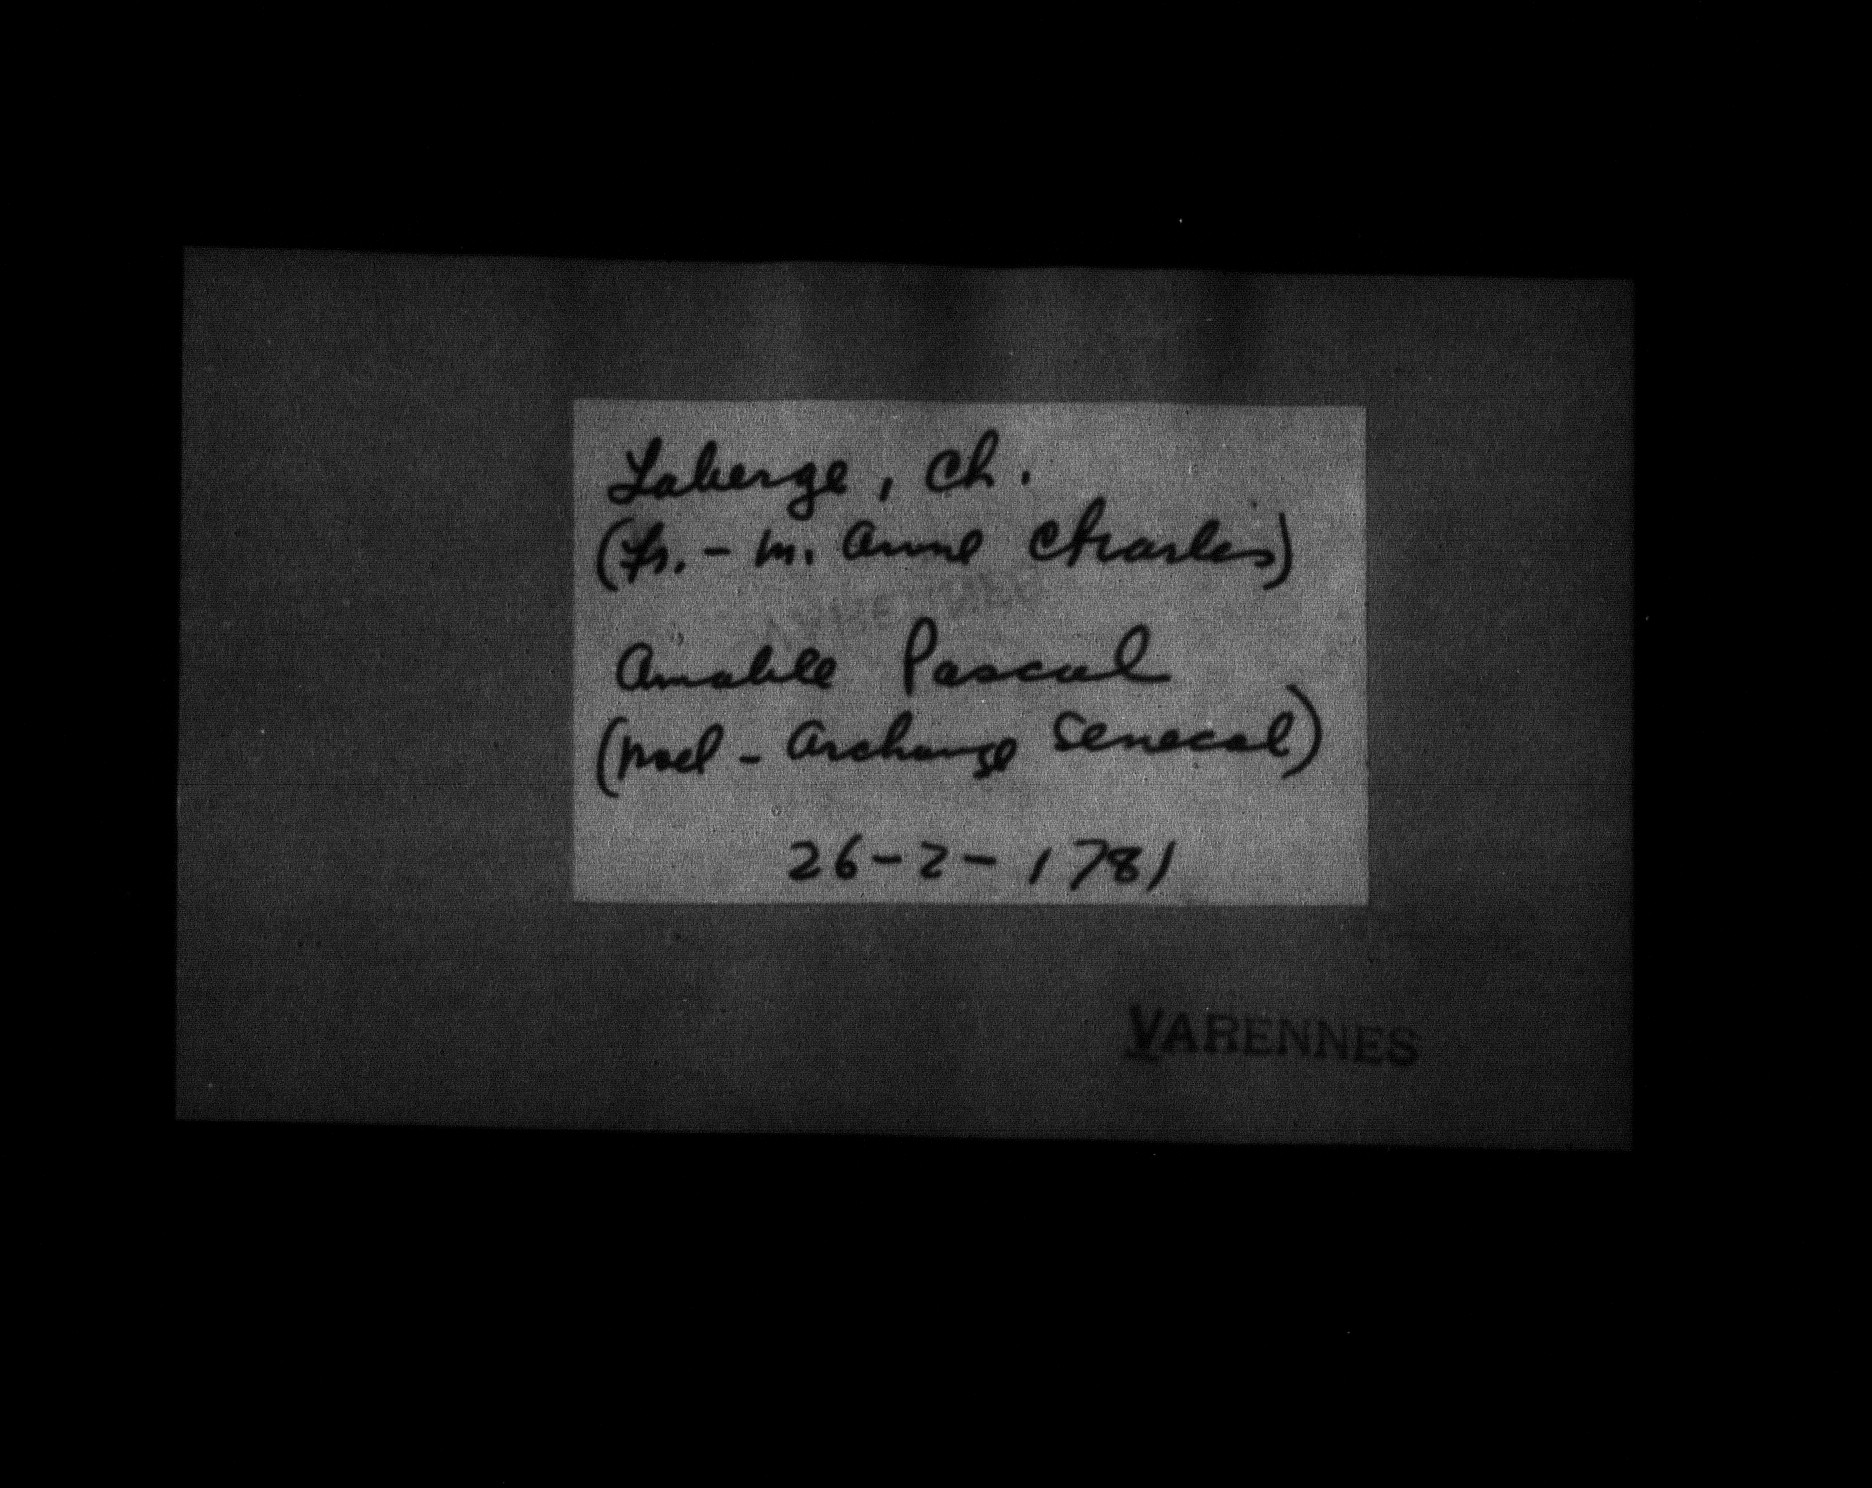 Laberge, Ch.
(Fr. - M. Anne Charles)
Amable Pascal
(Noel - Archange Senecal)
26-2-1781
VARENNES